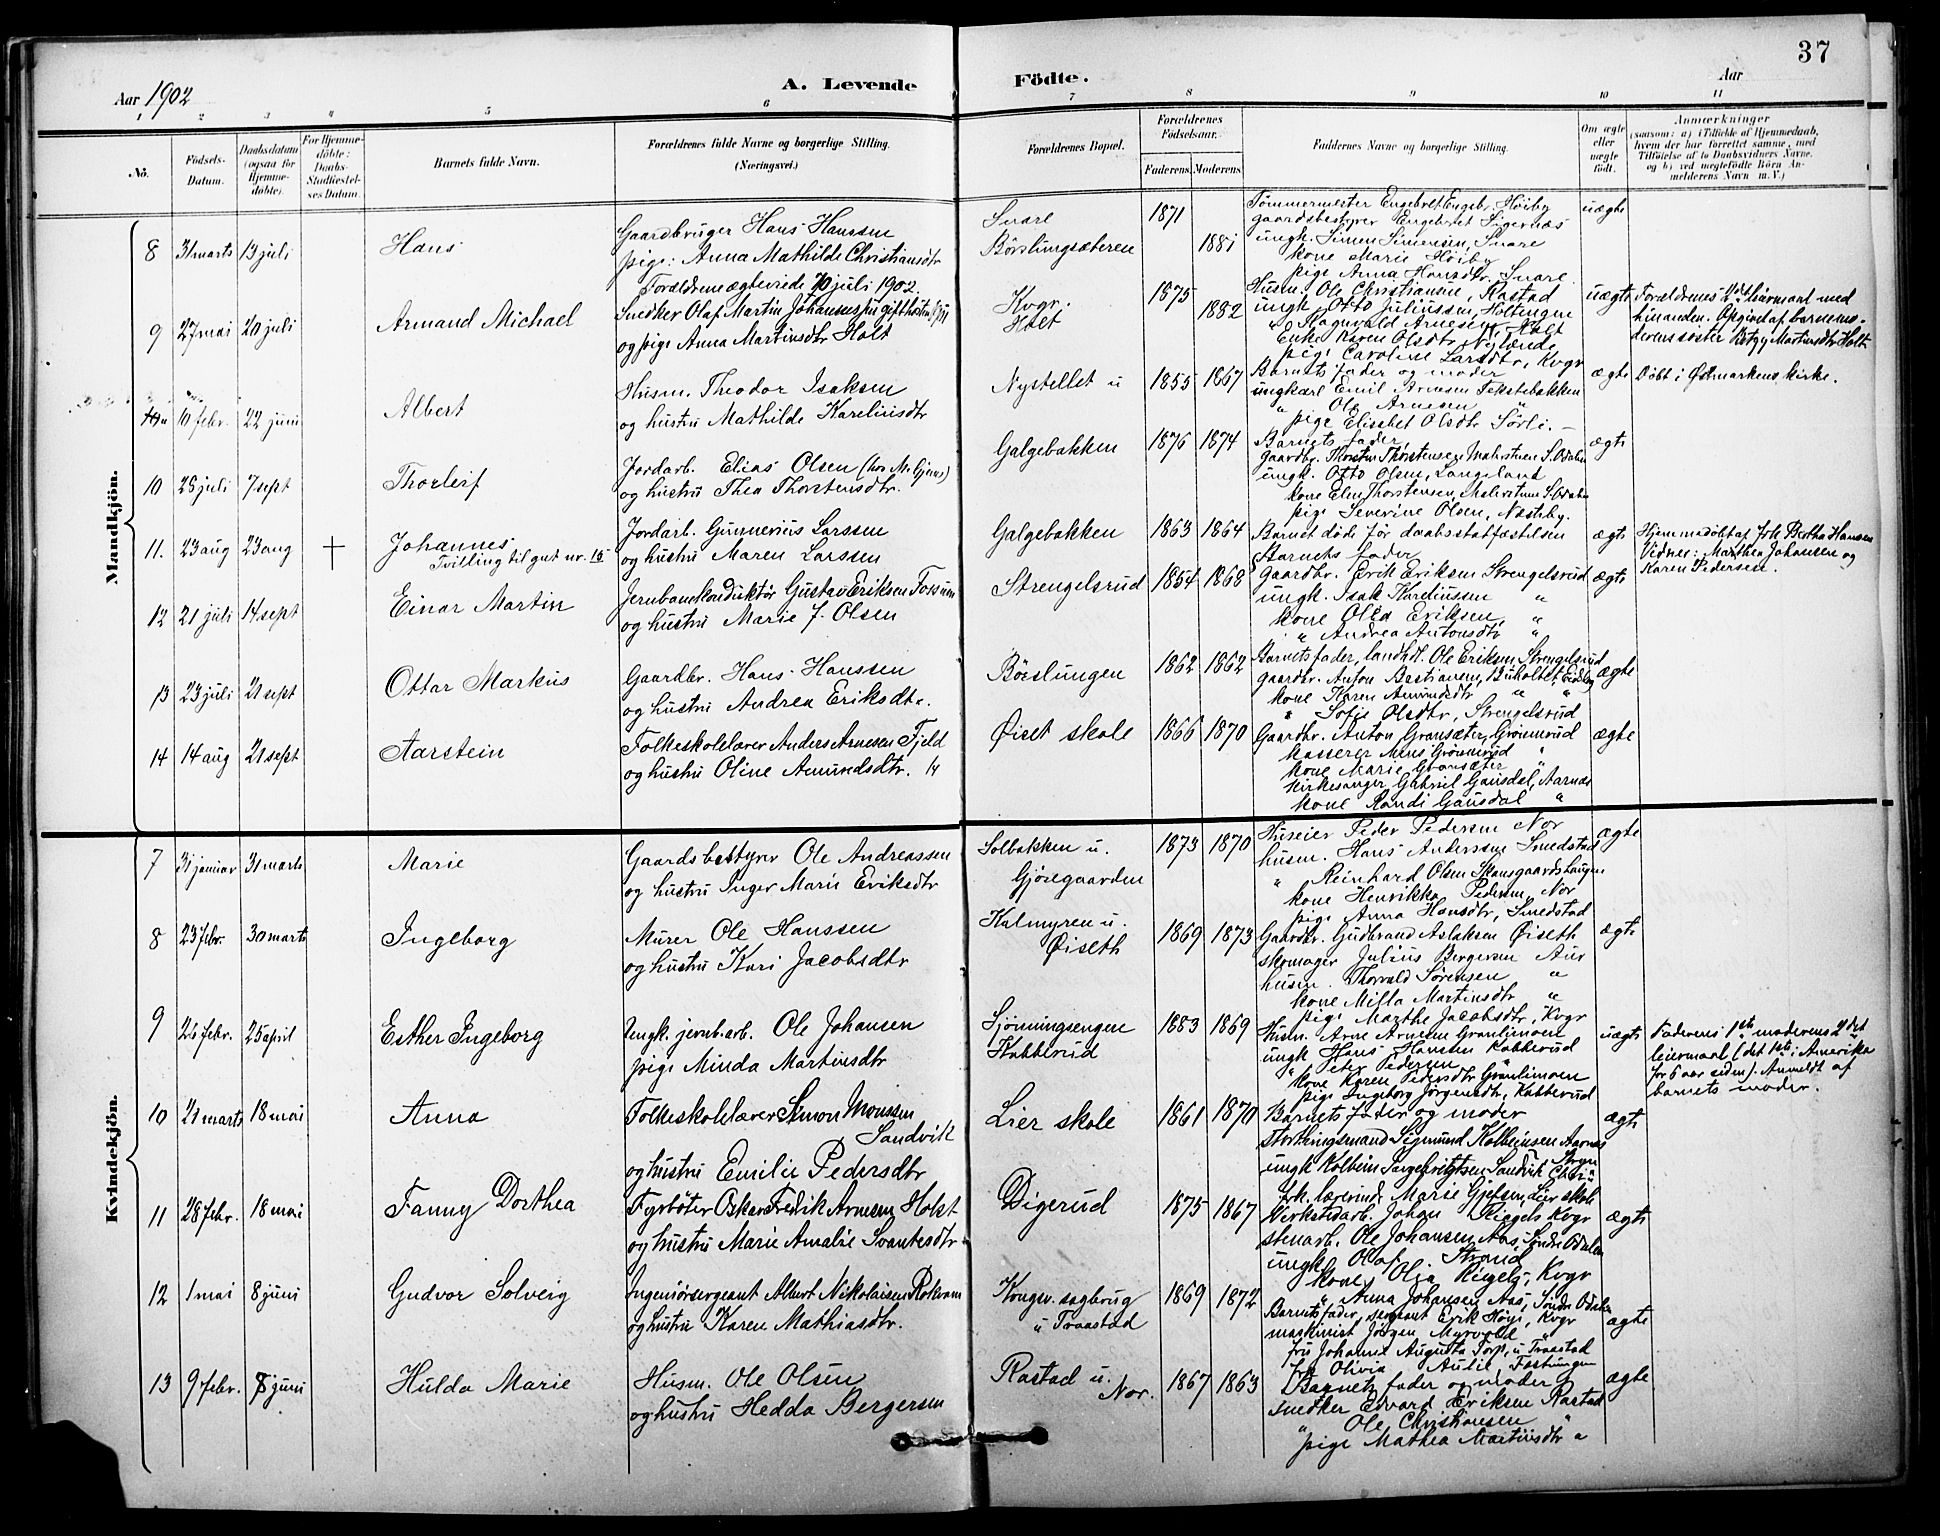 37
Aar 1902
A. Levende
Födte.
Aar
1 2 3 4 5 6 7 8 9 10 11
No.
Födsels-Datum.
Daabsdatum (ogsaa for Hjemme-döbte).
For Hjemme-döbte: Daabs-Stadfæstel-ses Datum.
Barnets fulde Navn.
Forældrenes fulde Navne og borgerlige Stilling.
(Næringsvei.)
Forældrenes Bopæl.
Forældrenes Födselsaar.
Faderens. Moderens.
Faddernes Navne og borgerlige Stilling.
Om ægte eller uægte födt.
Anmærkninger
(saasom: a) i Tilfælde af Hjemmedaab, hvem der har forrettet samme, med Tilföielse af to Daabsvidners Navne, og b) ved uægtefödte Börn Anmelderens Navn m. V.)
Mandkjön.
8 31 marts 13 juli Hans
Gaardbruger Hans Hanssen
pige: Anna Mathilde Christiansdtr
Forældrene ægteviede juli 1902.
Snare
Börslungsæteren
1871 1881
Tømmermester Engebret Engebr. Höiby
gaardsbestyrer Engebret Sigernæs
ungk. Simen Simensen, Snare
kone Marie Höiby
pige Anna Hansdtr, Snare
uægte
9 27 mai 20 juli Armand Michael
Snedker Olaf Martin Johannes
og pige Anna Martinsdtr Holt
Kvgr.
Holt
1875 1882
Husm. Ole Christiansen, Rastad
ungk. Otto Juliussen, Holtengne
" Ragnvald Arnesen, Holt
Enke Karen Olsdtr Nylænde
pige Caroline Larsdtr, Kvgr
uægte
Forældrenes 2det leiermaal med
hinanden. Opgivet af barnemo-
derens söster Betzy Martinsdtr Holt
10 febr. 22 juni Albert
Husm. Theodor Isaksen
og hustru Mathilde Karelinisdtr
Nystellet u
1855 1867
Barnets fader og moder
ungkarl Emil Arnesen Tekstebakken
" Ole Arnesen "
pige Elisabet Olsdtr Sörli. —
ægte
Döbt i Østmarkens kirke.
10 25 juli 7 sept Thorleif
Jordarb. Elias Olsen (hos M. Gjems)
og hustru Thea Thorstensdtr.
Galgebakken
1876 1874
Barnets fader,
gaardbr. Thorsten Thorstensen Malerstuen S. Odalen
ungk. Otto Olsen, Langeland
kone Elen Thorstensen, Malerstuen S. Odalen
pige Severine Olsen, Næsteby.
ægte
11. 23 aug 23 aug + Johannes
Tvilling til gut nr. 15
Jordarb. Gunnerius Larssen
og hustru Maren Larssen
Galgebakken
1863 1864
Barnet döde för daabsstadfæstelsen
ægte
Hjemmedöbt af frk Bertha Hansen
Vidner: Marthea Johansen og
Karen Pedersen.
12 21 juli 14 sept Einar Martin
Jernbanekonduktör Gustav Eriksen Fossum
og hustru Marie J. Olsen
Strengelsrud
1854 1868
Barnets fader
Gaardbr. Erik Eriksen Strengelsrud
ungk. Isak Kareliussen "
kone Olea Eriksen, "
" Andrea Antonsdtr "
ægte
13 23 juli 21 sept Ottar Markus
Gaardbr. Hans Hanssen
og hustru Andrea Eriksdtr.
Börslungen
1862 1862
Barnets fader, landhdl. Ole Eriksen Strengelsrud
gaardbr. Anton Bastiansen, Bukoltet, Eidskog
kone Karen Amundsdtr " "
" Sofie Olsdtr, Strengelsrud
ægte
14 14 aug 21 sept Aarstein
Folkeskolelærer Anders Arnesen Fjeld
og hustru Oline Amundsdtr. "
Öiset skole
1866 1870
Gaardbr. Anton Gransæter, Grönnerud
kasserer Mons Grönnerud "
kone Marie Gransæter "
Kirkesanger Gabriel Gausdal, Aarnæs
kone Randi Gausdal "
ægte
Kvindekjön.
7 31 januar 31 marts Marie
Gaardsbestyrer Ole Andreassen
og hustru Inger Marie Eriksdtr
Solbakken u.
Gjösegaarden
1873 1870
Huseier Peder Pedersen Nor
husm. Hans Anderssen Smedstad
" Reinhard Olsen Skansgaardshaugen
kone Henrikka Pedersen, Nor
pige Anna Hansdtr, Smedstad
ægte
8 23 febr. 30 marts Ingeborg
Murer Ole Hanssen
og hustru Kari Jacobsdtr
Kalmyren u.
Öiseth
1869 1873
Gaardbr. Gudbrand Aslaksen Öiseth
skomager Julius Bergersen Aur
husm. Thorvald Sörensen "
kone Milla Martinsdtr "
pige Marthe Jacobsdtr, Kvgr
ægte
9 26 febr. 25 april Esther Ingeborg
Ungk. jernb.arb. Ole Johansen
pige Minda Martinsdtr
Sjömningsengen
Kabberud
1883 1869
Husm. Arne Arnesen Granlimoen
ungk Hans Hansen Kabberud
" Peter Pedersen "
kone Karen Pedersdtr Granlimoen
pige Ingeborg Jörgensdtr, Kabberud
uægte
Faderens 1ste moderens 2det
leiermaal (det 1ste i Amerika
for 6 aar siden). Anmeldt af
barnets moder.
10 21 marts 18 mai Anna
Folkeskolelærer Simon Monssen
Sandvik
og hustru Emilie Pedersdtr
Lier skole
1861 1870
Barnets fader og moder
storthingsmand Sigmund Kolbeinsen Aarnæs
ungk Kolbein Ingebrigtsen Sandvik
frk. lærerinde Marie Gjefsen, Lier skole
ægte
11 28 febr. 18 mai Fanny Dorthea
Fyrböter Oskar Fredrik Arnesen Holst
og hustru Marie Amalie Svantesdtr
Digerud
1875 1867
Verkstedarb. Johan Riegels Kvgr
stenarb. Ole Johansen Aas, Söndre Odalen
ungk Olaf Strand
kone Olga Riegels, Kvgr
" Anna Johansen Aas, Söndre Odalen
ægte
12 1 mai 8 juni Gudvor Solveig
Ingeniörsergeant Albert Nikolaisen Rokvam
og hustru Karen Mathiasdtr.
Kongsv. sagbrug
u Traastad
1869 1872
Barnets fader, sergeant Erik Höye, Kvgr
maskinist Jörgen Myrvold "
fru Johanne Augusta Torp, u Traastad
frk Olivia Aulie, Fæstningen
ægte
13 9 febr. 8 juni Hulda Marie
Husm. Ole Olsen
og hustru Hedda Bergersen
Rastad u.
Nor.
1867 1863
Barnets fader og moder
snedker Edvard Eriksen Rastad
" Ole Christiansen "
pige Mathea Martinsdtr "
ægte